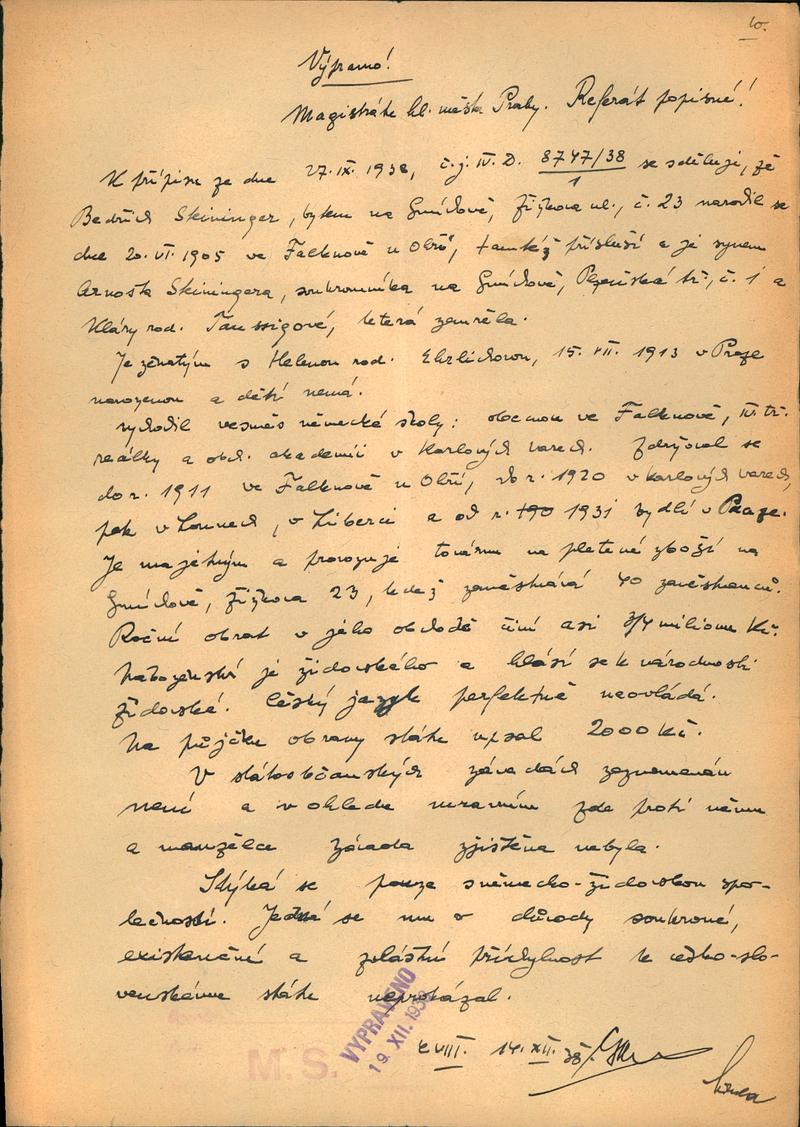 10.
Výpravno!
Magistrátu hl. města Prahy. Referát popisné!
K přípisu ze dne 27.IX.1938, č.j. IV.D. 8747/38 se sděluji, že
1
Bedřich Skininger, bytem na Smíchově, Žižkova ul., č. 23 narodil se
dne 20.VI.1905 ve Falknově n Ohří, tamtéž přísluší a je synem
Arnošta Skiningera, soukromníka na Smíchově, Plzeňská tř., č. 1 a
Kláry roz. Taussigové, která zemřela.
Je ženatým s Helenou rod. Ehrlichovou, 15.VII.1913 v Praze
narozenou a dětí nemá.
vychodil vesměs německé školy: obecnou ve Falknově, IV. tř.
reálky a obch. akademii v Karlových Varech. Zdržoval se
do r. 1911 ve Falknově n Ohří, do r. 1920 v Karlových Varech,
pak v Lounech, v Liberci a od r. 190 1931 bydlí v Praze.
Je majetným a provozuje továrnu na pletené zboží na
Smíchově, Žižkova 23, kdež zaměstnává 40 zaměstnanců.
Roční obrat v jeho obchodě činí asi 3/4 milionu Kč.
Náboženství je židovského a hlásí se k národnosti
židovské. Český jazyk perfektně neovládá.
Na půjčku obrany státu upsal 2000 Kč.
V státoobčanských závadách zaznamenán
není a v ohledu mravním zde proti němu
a manželce závada zjištěna nebyla.
Stýká se pouze s německo-židovskou spo-
lečností. Jedná se mu o důvody soukromé,
existenční a zvláštní příchylnost k česko-slo-
venskému státu neprokázal.
VYPRAVENO
19. XII. 1938
M. S.
XVIII. 14.XII.38.